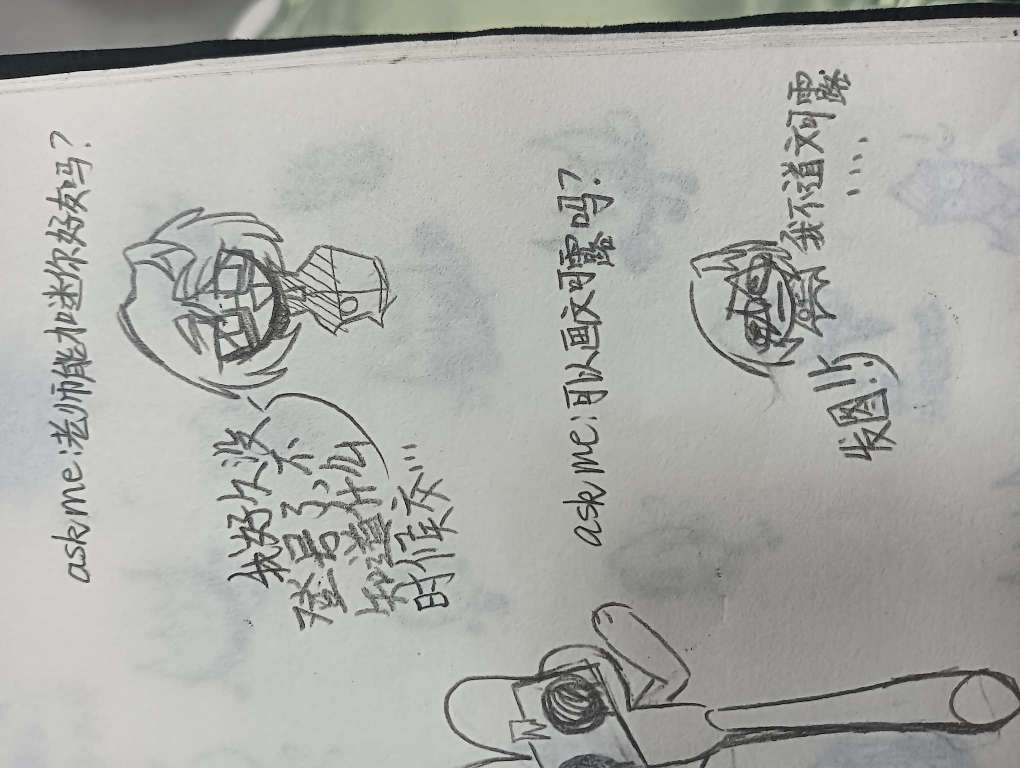 ask me:老师能加迷你好友吗?
我好久没
登号了不
知道什么
时候交…
ask me:可以画文可露吗?
我不道文可露
....
发图